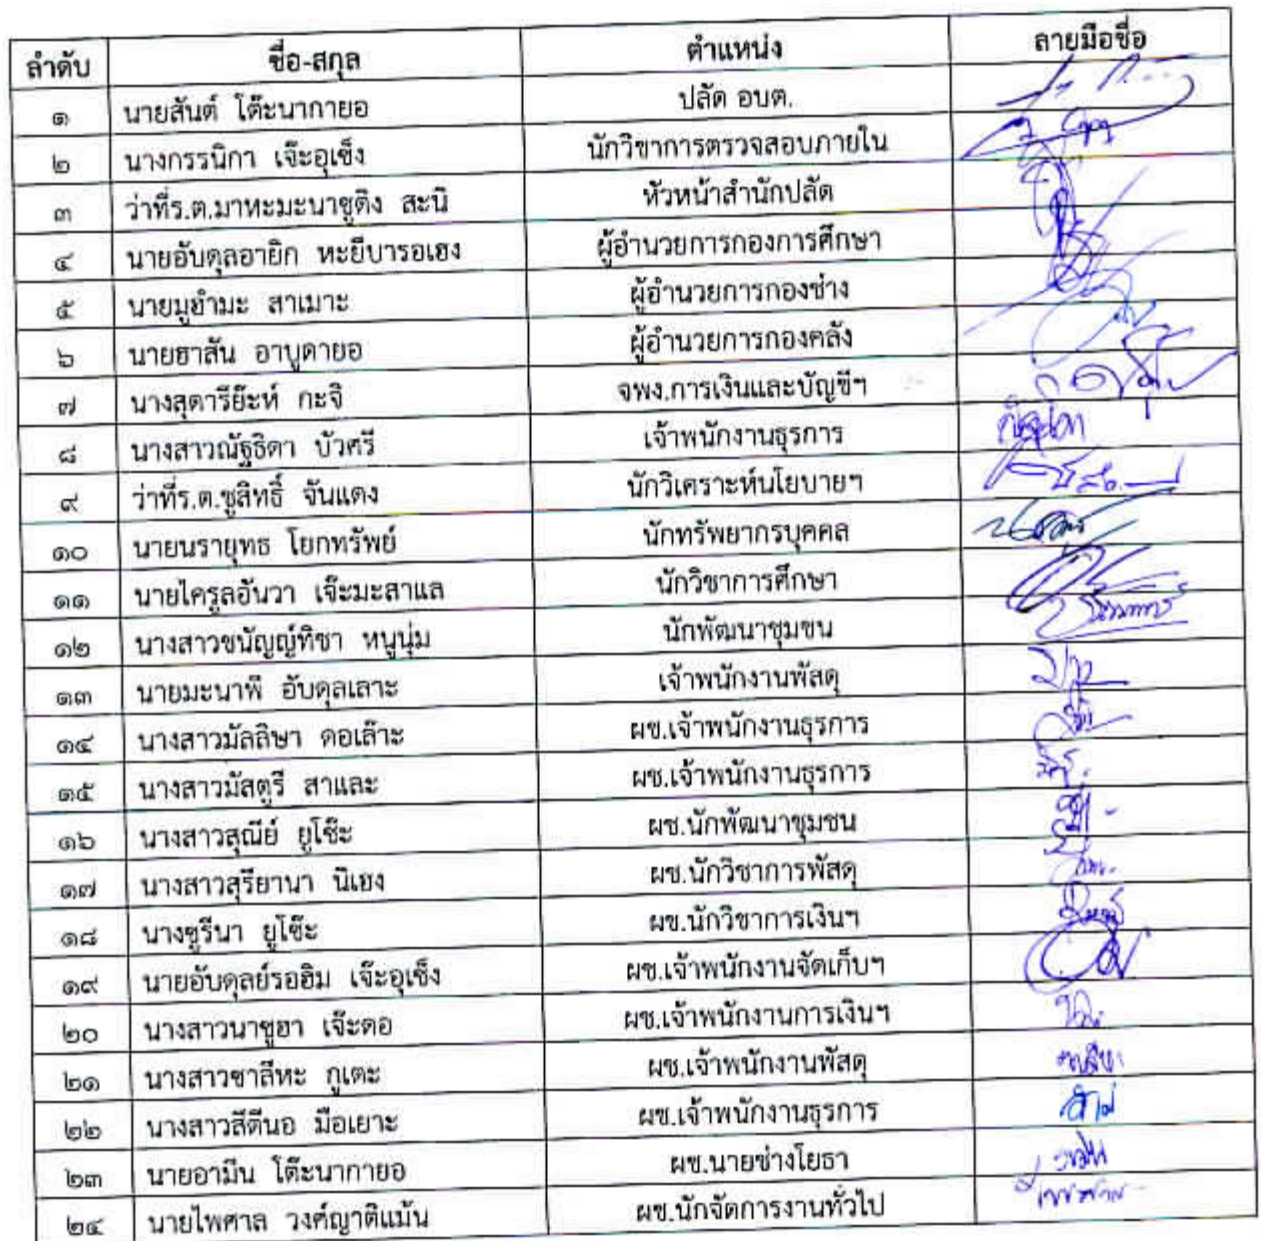 ลำดับ ชื่อ-สกุล ตำแหน่ง ลายมือชื่อ
๑ นายสันต์ โต๊ะนากายอ ปลัด อบต.
๒ นางกรรนิกา เจ๊ะอุเซ็ง นักวิชาการตรวจสอบภายใน
๓ ว่าที่ร.ต.มาหะมะนาซูดิง สะนิ หัวหน้าสำนักปลัด
๔ นายอับดุลอายิก หะยีบารอเฮง ผู้อำนวยการกองการศึกษา
๕ นายมูฮำมะ สาเมาะ ผู้อำนวยการกองช่าง
๖ นายฮาสัน อาบูดายอ ผู้อำนวยการกองคลัง
๗ นางสุดารีย๊ะห์ กะจิ จพง.การเงินและบัญชีฯ
๘ นางสาวณัฐธิดา บัวศรี เจ้าพนักงานธุรการ
๙ ว่าที่ร.ต.ชูสิทธิ์ จันแดง นักวิเคราะห์นโยบายฯ
๑๐ นายนรายุทธ โยกทรัพย์ นักทรัพยากรบุคคล
๑๑ นายไครูลอันวา เจ๊ะมะสาแล นักวิชาการศึกษา
๑๒ นางสาวชนัญญ์ทิชา หนูนุ่ม นักพัฒนาชุมชน
๑๓ นายมะนาพี อับดุลเลาะ เจ้าพนักงานพัสดุ
๑๔ นางสาวมัลลิษา ดอเล๊าะ ผช.เจ้าพนักงานธุรการ
๑๕ นางสาวมัสตูรี สาและ ผช.เจ้าพนักงานธุรการ
๑๖ นางสาวสุณีย์ ยูโซ๊ะ ผช.นักพัฒนาชุมชน
๑๗ นางสาวสุรียานา นิเฮง ผช.นักวิชาการพัสดุ
๑๘ นางซูรีนา ยูโซ๊ะ ผช.นักวิชาการเงินฯ
๑๙ นายอับดุลย์รอฮิม เจ๊ะอุเซ็ง ผช.เจ้าพนักงานจัดเก็บฯ
๒๐ นางสาวนาซูฮา เจ๊ะดอ ผช.เจ้าพนักงานการเงินฯ
๒๑ นางสาวซาลีหะ กูเตะ ผช.เจ้าพนักงานพัสดุ
๒๒ นางสาวสีตีนอ มือเยาะ ผช.เจ้าพนักงานธุรการ
๒๓ นายอามีน โต๊ะนากายอ ผช.นายช่างโยธา
๒๔ นายไพศาล วงศ์ญาติแม้น ผช.นักจัดการงานทั่วไป